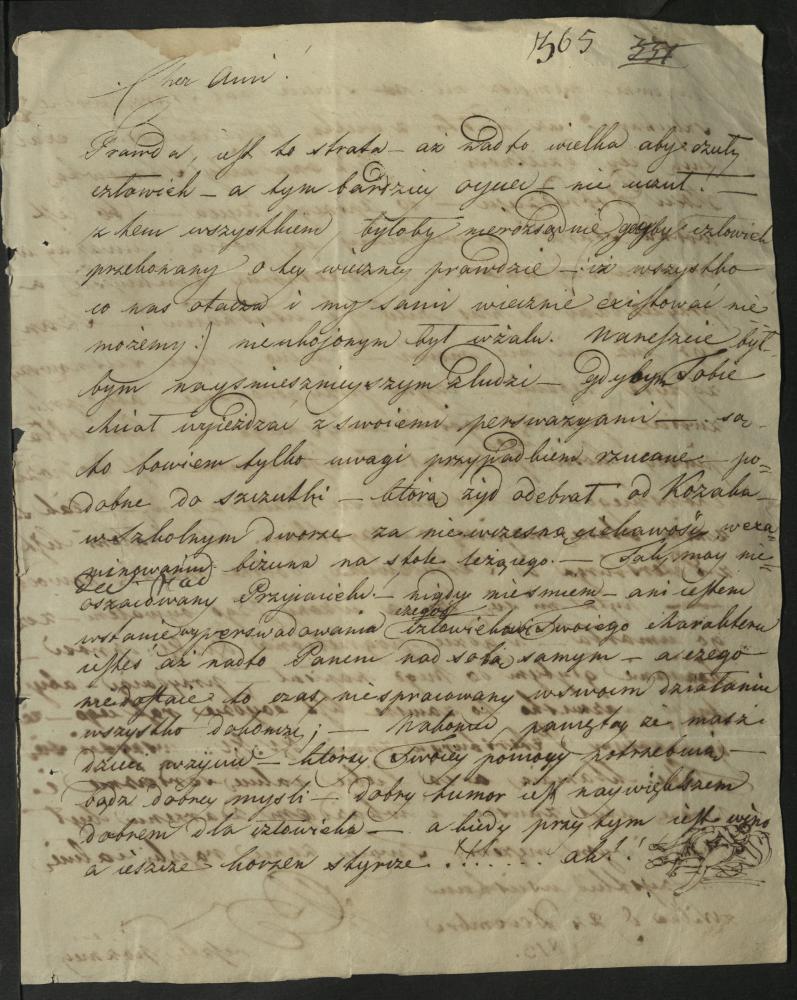 1365 351
Cher Ami!
Prawda, iest to strata – aż nadto wielka aby czuły
człowiek – a tym bardziey oyciec – nie uczuł! –
z tem wszystkiem byłoby nierozsądnie, gdyby człowiek
przekonany o tey wieczney prawdzie – iż wszystko
co nas otacza i my sami wiecznie existować nie
możemy :/ nieukojonym był w żalu. Nareszcie był-
bym nayśmiesznieyszym z ludzi – gdybym Tobie
chciał wyieżdżać z swoiemi perswazyami – są
to bowiem tylko uwagi przypadkiem rzucane – po=
dobne do szczutki – którą żyd odebrał od Kozaka
w szkolnym dworze za niewczesną ciekawość w exa=
minowaniu biżuna na stole leżącego. – Tak, moy nie=
oszacowany Przyjacielu! – nigdy nie śmiem – ani iestem
wstanie wyperswadowania człowiekowi Twoiego charakteru
iesteś aż nadto Panem nad sobą samym – a czego
niedostaie to czas, niespracowany w swoim działaniu
wszystko dokończy; – Nakoniec pamiętay że masz
dzieci w życiu – którzy Twoiey pomocy potrzebuią –
bądź dobrey myśli – dobry humor iest naywiększem
dobrem dla człowieka – a kiedy przy tym iest wino
a ieszcze korzen styrcze !!! . . . . . ah!!